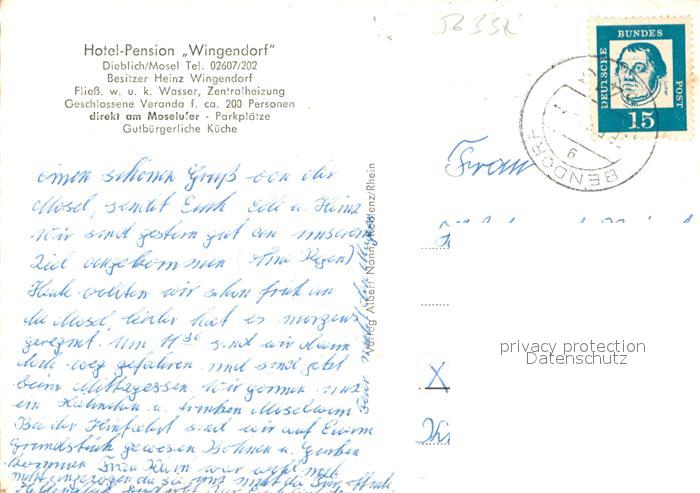 56332
Hotel-Pension „Wingendorf"
Dieblich/Mosel Tel. 02607/202
Besitzer Heinz Wingendorf
Fließ. w. u. k. Wasser, Zentralheizung
Geschlossene Veranda f. ca. 200 Personen
direkt am Moselufer - Parkplätze
Gutbürgerliche Küche
DEUTSCHE BUNDES POST
Luther
15
BENDORF
Frau
einen schönen Gruß von der
Mosel, sendet Euch u. Heinz
Wir sind gestern gut an unserem
Ziel angekommen (ohne Regen)
Heute wollten wir schon früh an
die Mosel, leider hat es morgens
geregnet. Um 11 30 sind wir dann
doch weg gefahren und sind jetzt
beim Mittagessen. Wir gönnen uns
ein Hähnchen u. trinken Moselwein
Bei der Hinfahrt sind wir auf Eurem
Grundstück gewesen Bohnen u. Gurken
kommen Frau war wohl
Verlag Albert Nonn, Koblenz/Rhein
privacy protection
Datenschutz
X